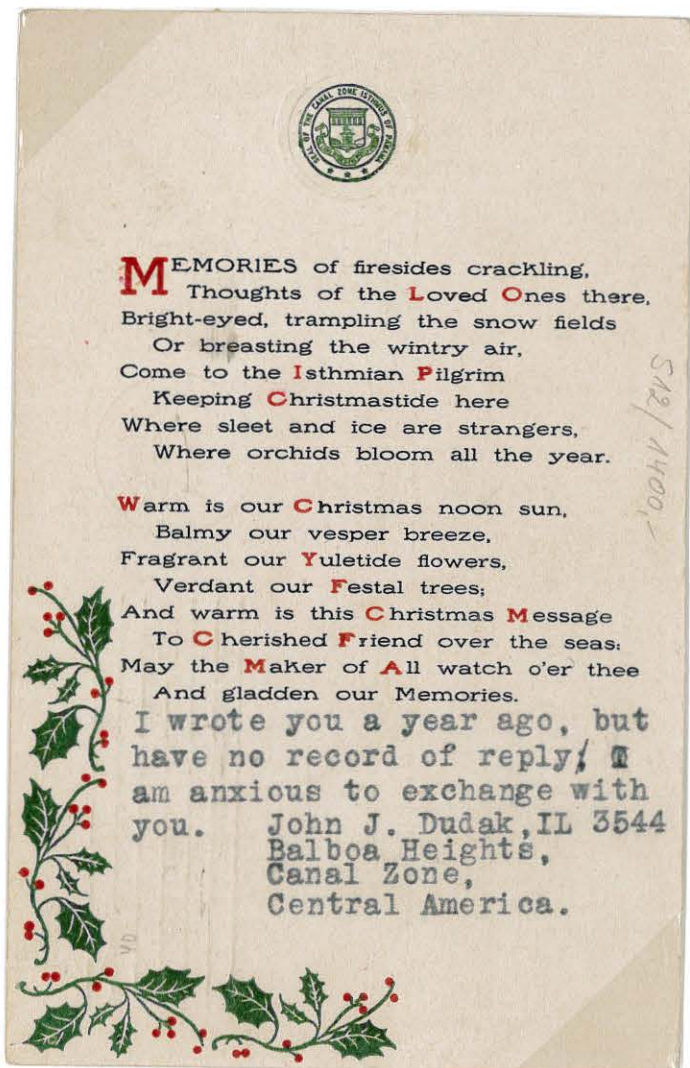 SEAL OF THE CANAL ZONE ISTHMUS OF PANAMA
MEMORIES of firesides crackling,
Thoughts of the Loved Ones there,
Bright-eyed, trampling the snow fields
Or breasting the wintry air,
Come to the Isthmian Pilgrim
Keeping Christmastide here
Where sleet and ice are strangers,
Where orchids bloom all the year.
Warm is our Christmas noon sun,
Balmy our vesper breeze,
Fragrant our Yuletide flowers,
Verdant our Festal trees;
And warm is this Christmas Message
To Cherished Friend over the seas:
May the Maker of All watch o'er thee
And gladden our Memories.
I wrote you a year ago, but
have no record of reply! I
am anxious to exchange with
you. John J. Dudak, IL 3544
Balboa Heights,
Canal Zone,
Central America.
512/1400,-